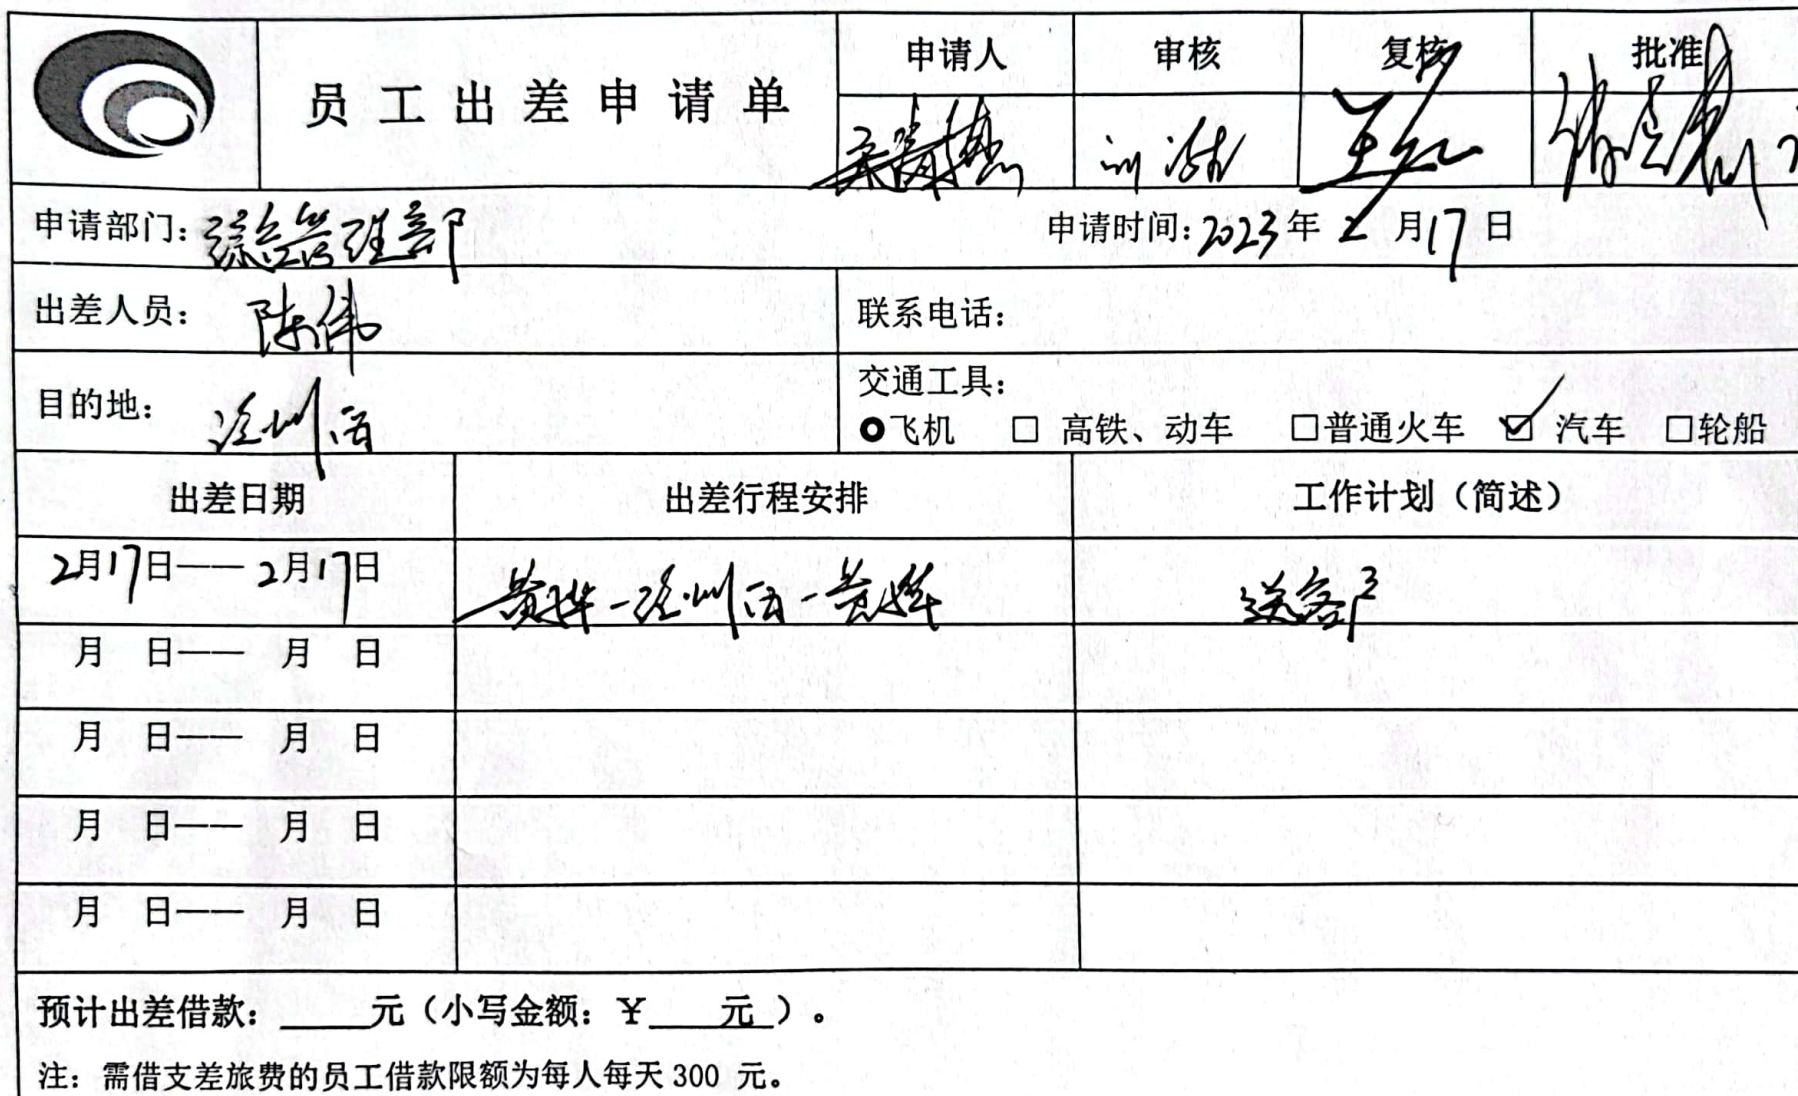 员工出差申请单
申请人 审核 复核 批准
王红
申请部门：综合管理部 申请时间：2023年2月17日
出差人员：陈伟 联系电话：
目的地： 交通工具：
飞机 □ 高铁、动车 □普通火车 ☑ 汽车 □轮船
出差日期 出差行程安排 工作计划（简述）
2月17日——2月17日 送客户
月 日—— 月 日
月 日—— 月 日
月 日—— 月 日
月 日—— 月 日
预计出差借款：_____元（小写金额：￥____元_）。
注：需借支差旅费的员工借款限额为每人每天300 元。